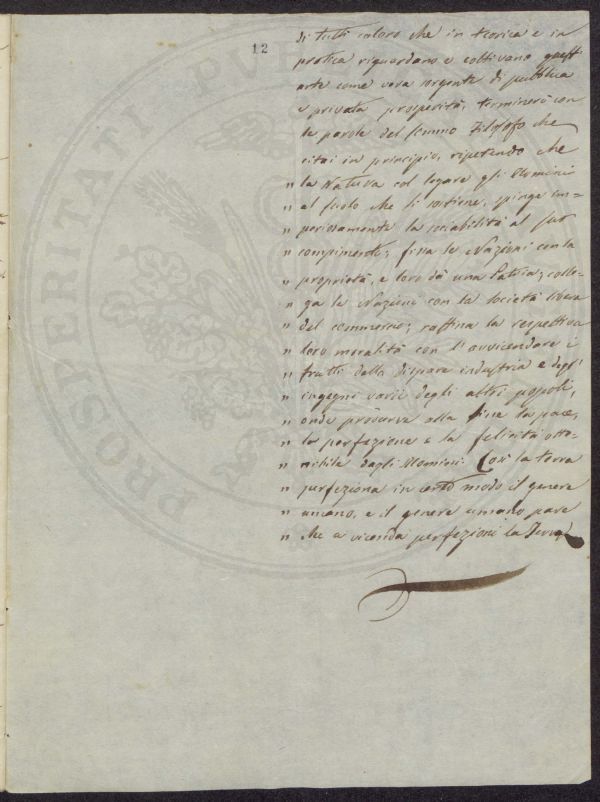 12
di tutti coloro che in teorica e in
pratica riguardano e coltivano quest'
arte come vera sorgente di pubblica
e privata prosperità, terminerò con
le parole del sommo Filosofo che
citai in principio, ripetendo che
" la Natura col legare gli Uomini
" al suolo che li sostiene, spinge im=
" periosamente la sociabilità al suo
" compimento; fissa le Nazioni con la
" proprietà, e loro dà una Patria; colle-
" ga le Nazioni con la società libera
" del commercio; raffina la respettiva
" loro moralità con l'avvicendare i
" frutti della dispare industria e degl'
" ingegni varii degli altri popoli,
" onde produrre alla fine la pace,
" la perfezione e la felicità otte-
" nibile dagli Uomini. Così la terra
" perfeziona in certo modo il genere
" umano, e il genere umano pare
" che a vicenda perfezioni la Terra
PROSPERITATI PUB